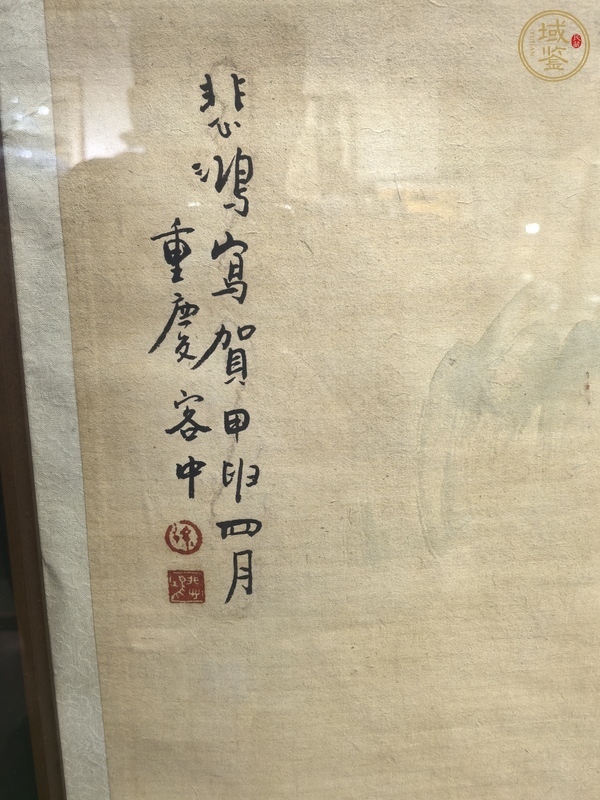 悲鴻寫賀甲申四月
重慶客中
徐
域鉴